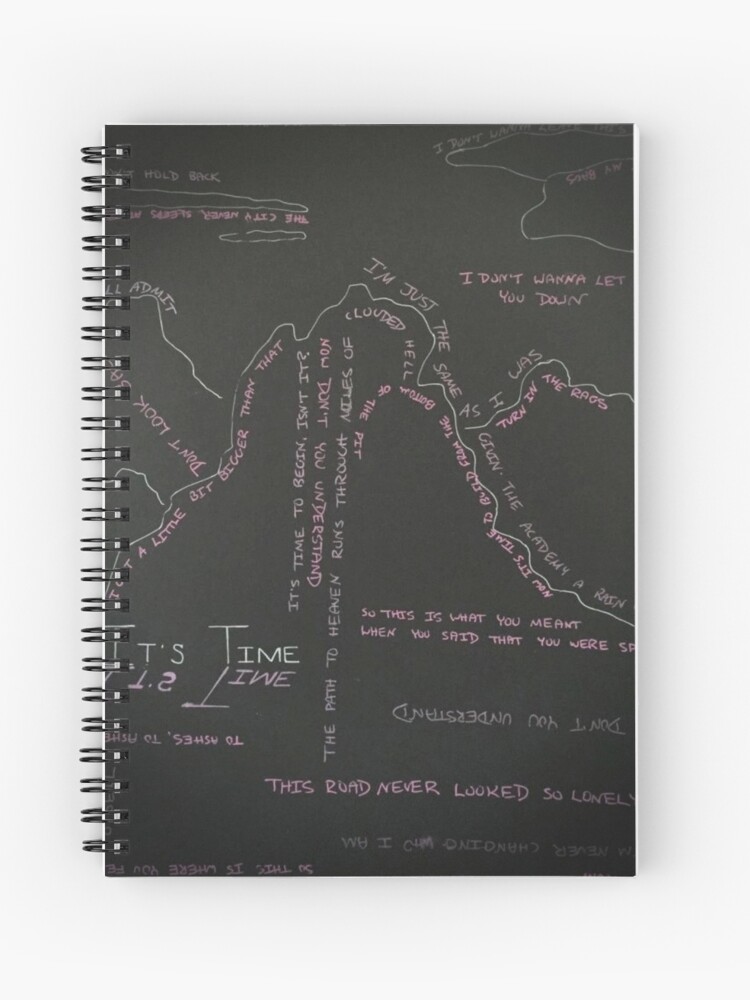 HOLD BACK
THE CITY NEVER SLEEPS
I DON'T WANNA LEAVE THIS
MY BAGS
I DON'T WANNA LET
YOU DOWN
LL ADMIT
DON'T LOOK
A LITTLE BIT BIGGER THAN THAT
I'M JUST THE SAME AS I WAS
CLOUDED HELL
TURN IN THE RAGS
GIVIN' THE ACADEMY A RAIN
NOW IT'S TIME TO BUILD FROM THE BOTTOM OF THE PIT
IT'S TIME TO BEGIN, ISN'T IT?
NOW DON'T YOU UNDERSTAND
THE PATH TO HEAVEN RUNS THROUGH MILES OF
SO THIS IS WHAT YOU MEANT
WHEN YOU SAID THAT YOU WERE SP
IT'S TIME
IT'S TIME
DON'T YOU UNDERSTAND
TO ASHES, TO ASHE
THIS ROAD NEVER LOOKED SO LONELY
'M NEVER CHANGING WHO I AM
SO THIS IS WHERE YOU FE